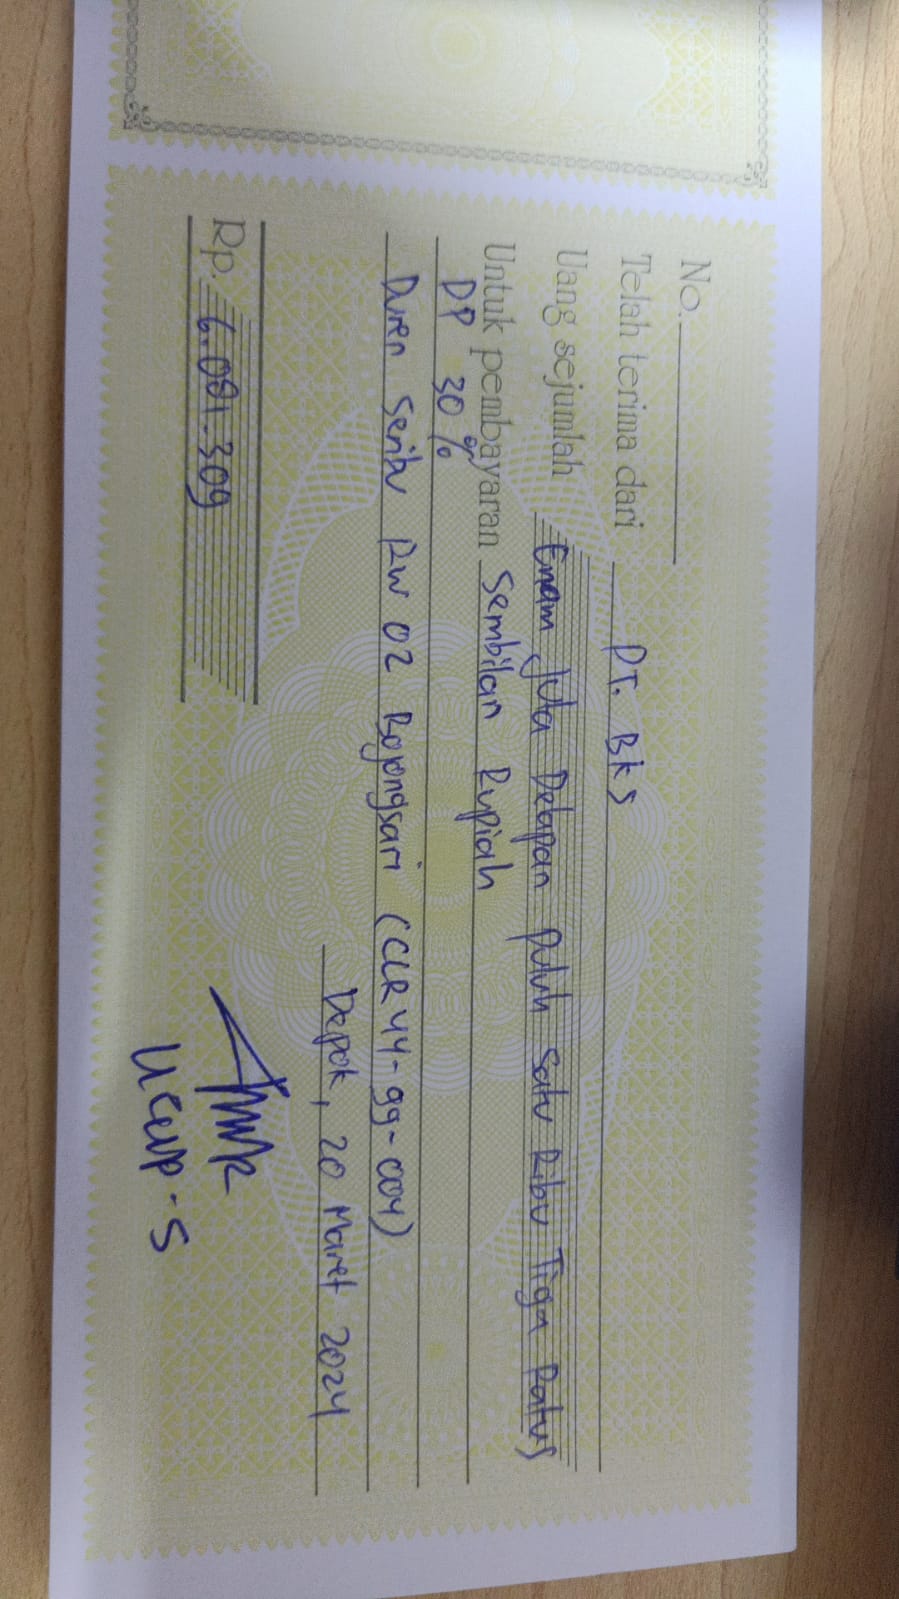 No.
Telah terima dari PT. BKS
Uang sejumlah Enam Juta Delapan Puluh Satu Ribu Tiga Ratus
Untuk pembayaran Sembilan Rupiah
DP 30%
Duren Seribu RW 02 Bojongsari (CLR 44-99-004)
Depok, 20 Maret 2024
Rp. 6.081.309
Ucup-S